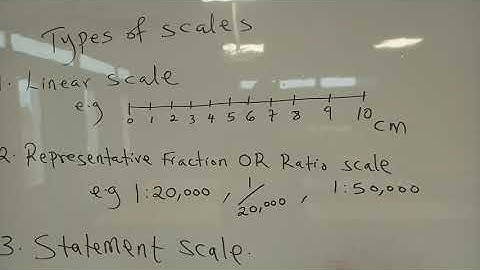 Types of scales
1. Linear scale
e.g
0 1 2 3 4 5 6 7 8 9 10 cm
2. Representative Fraction OR Ratio scale
e.g 1:20,000 , 1/20,000 , 1:50,000
3. Statement scale.